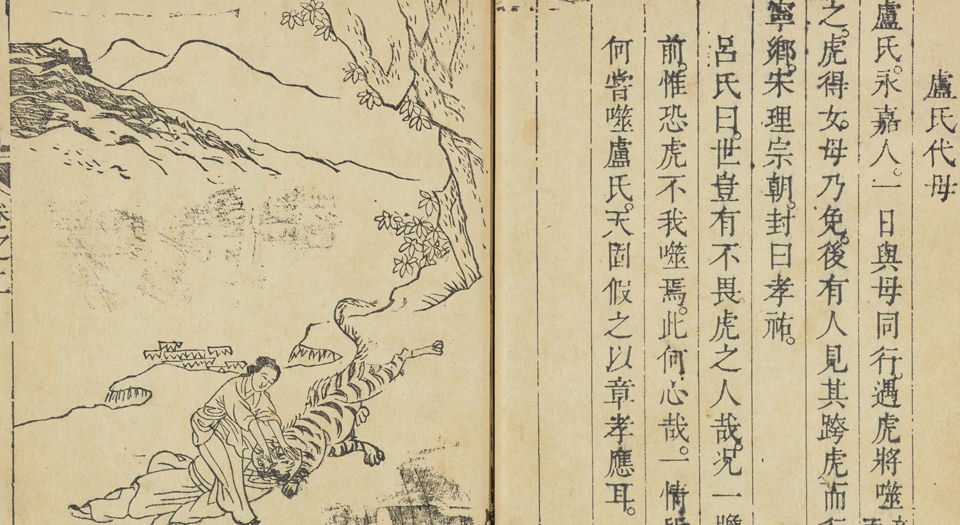 盧氏代母
盧氏。永嘉人。一日與母同行。遇虎將噬
之。虎得女。母乃免。後有人見其跨虎而行
寧鄉。宋理宗朝。封曰孝祐。
呂氏曰。世豈有不畏虎之人哉。况一
前。惟恐虎不我噬焉。此何心哉。一情
何嘗噬盧氏。天固假之以章孝應耳。
卷之二